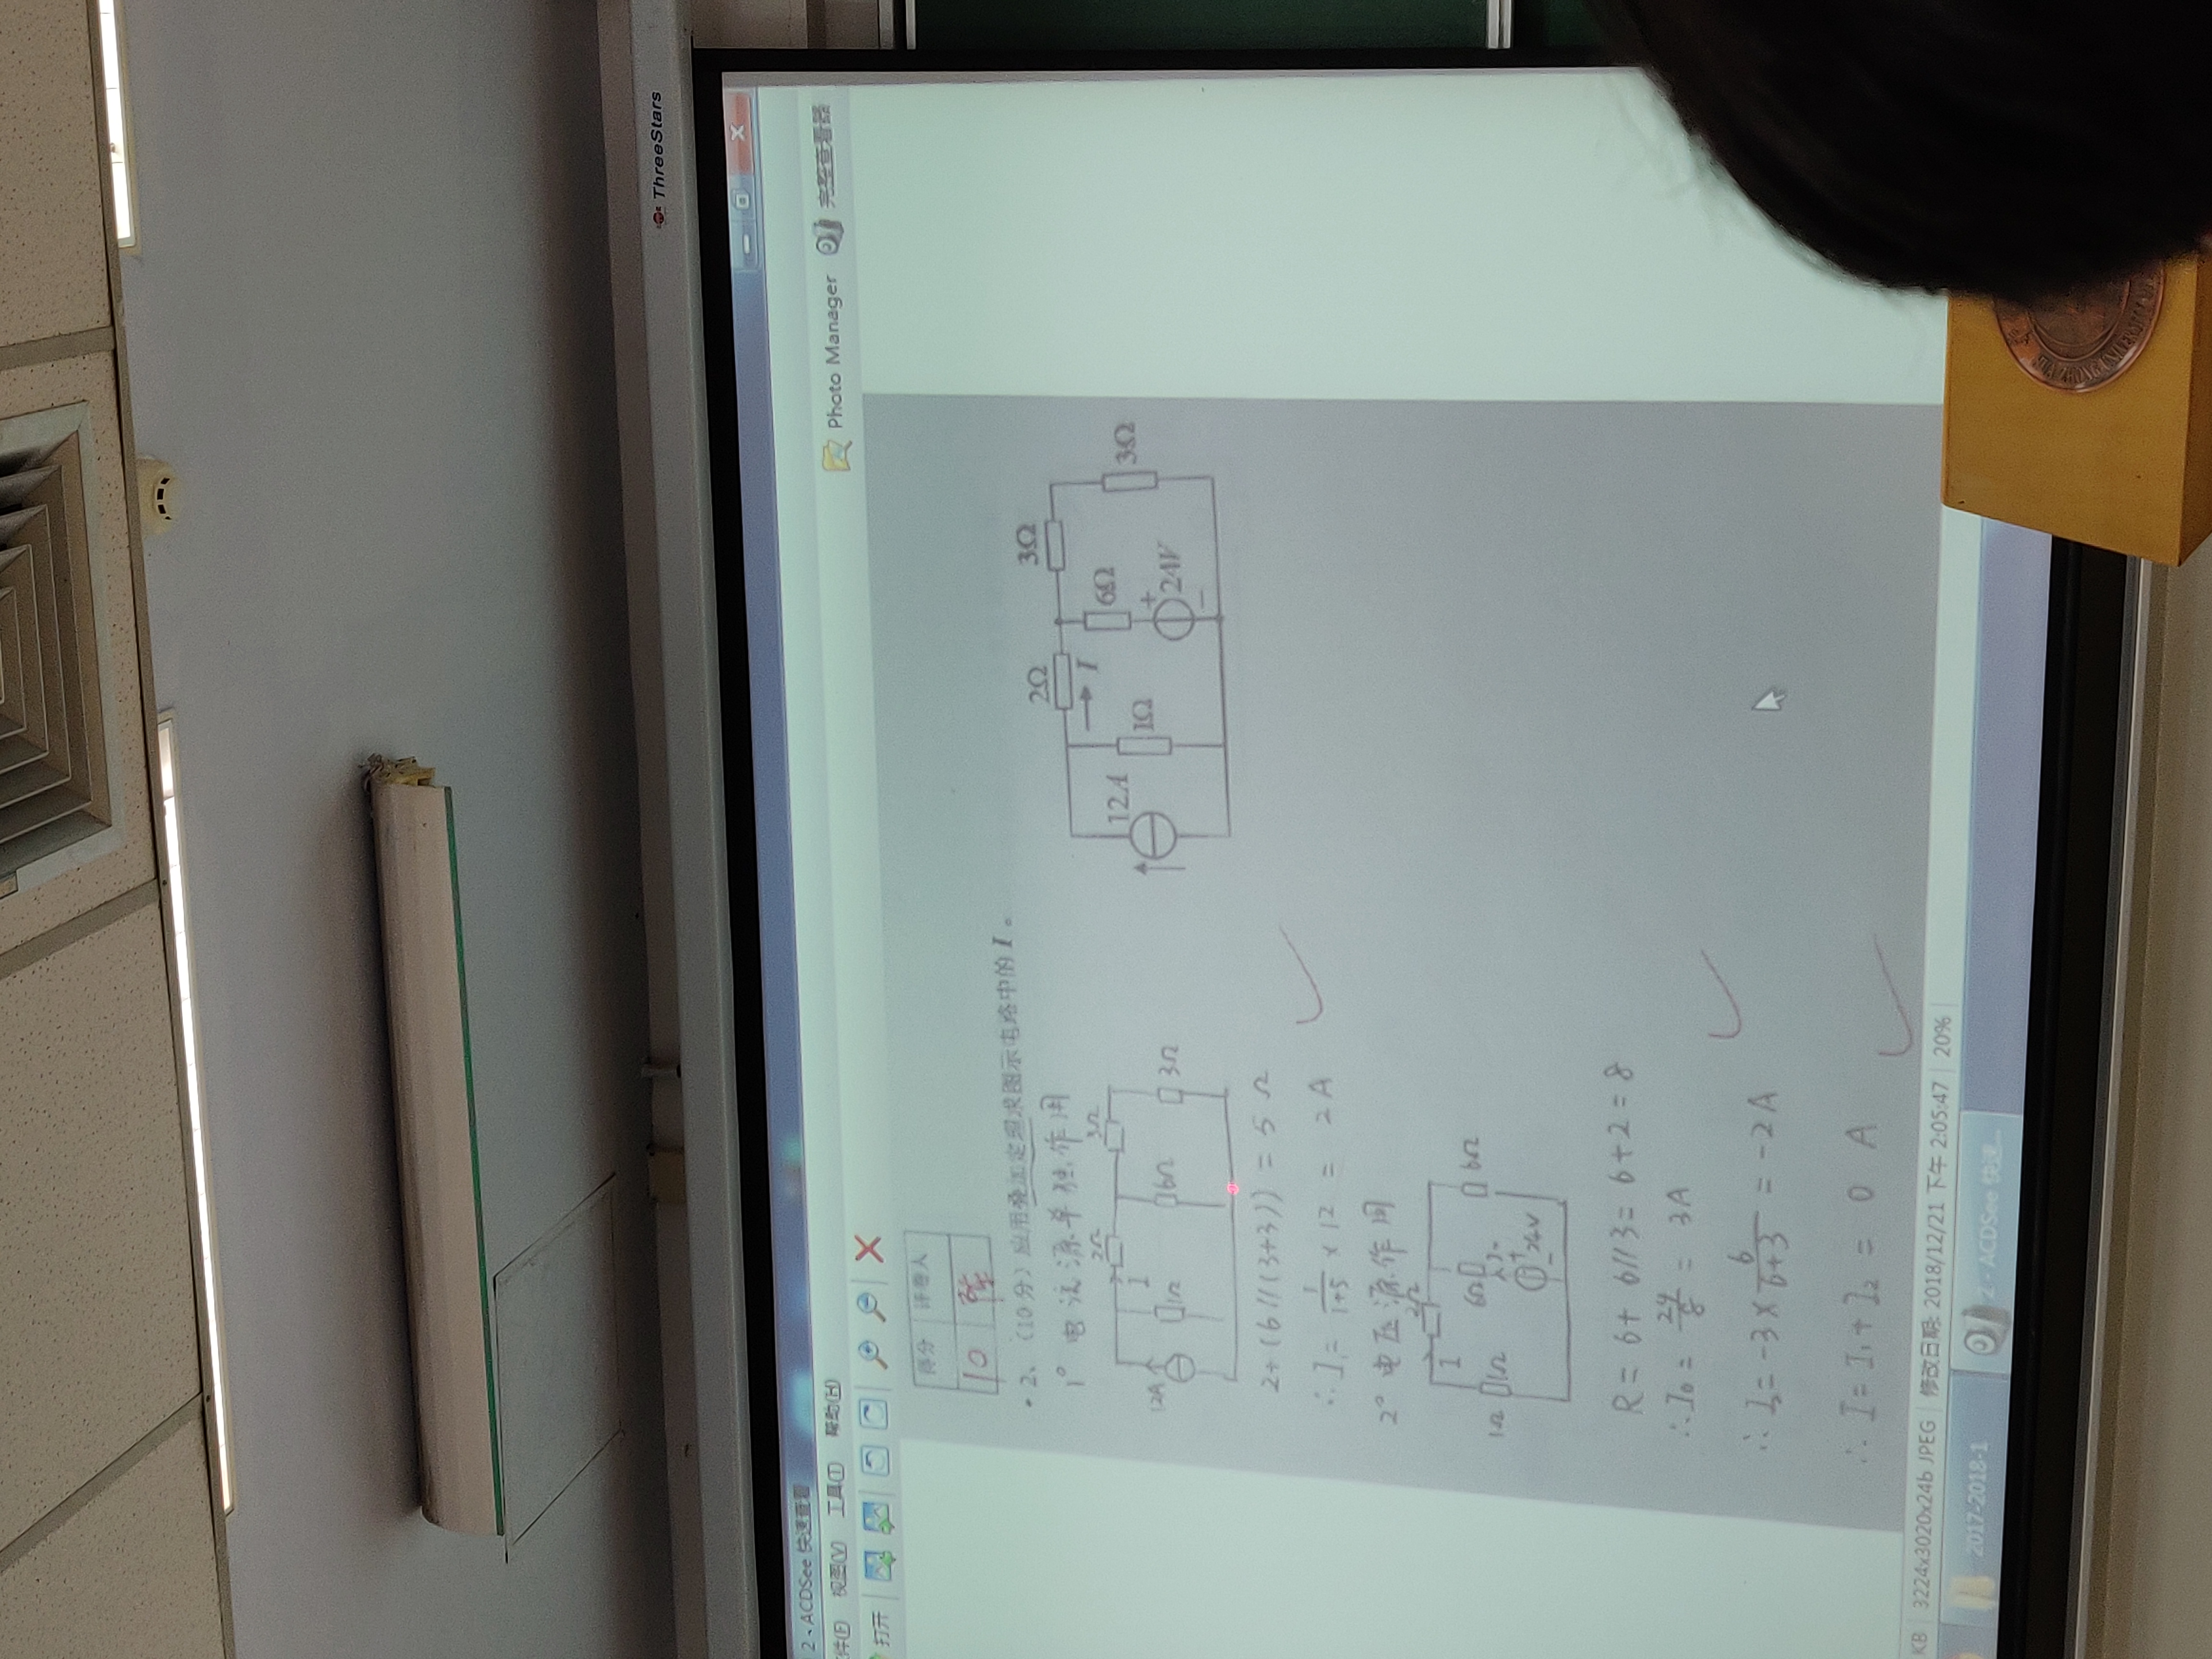 ThreeStars
2、ACDSee 快速查看
件(F) 视图(V) 工具(T) 帮助(H)
Photo Manager 完整查看器
打开
得分 评卷人
10 陈
2、（10分）应用叠加定理求图示电路中的 I 。
1° 电流源单独作用
2Ω 3Ω
I
12A 1Ω 6Ω 3Ω
2Ω 3Ω
I
12A 1Ω 6Ω 3Ω
+
24V
−
2+(6//(3+3)) = 5 Ω
∴ I₁= 1/(1+5) × 12 = 2A
2° 电压源作用
2Ω
I
1Ω 1Ω 6Ω 6Ω
I₀
+
24V
−
R = 6+ 6//3 = 6+2 = 8
∴ I₀ = 24/8 = 3A
∴ I₂= -3 × 6/(6+3) = -2A
∴ I = I₁ + I₂ = 0 A
KB 3224x3020x24b JPEG 修改日期: 2018/12/21 下午 2:05:47 20%
2017-2018-1 2 - ACDSee 快速...